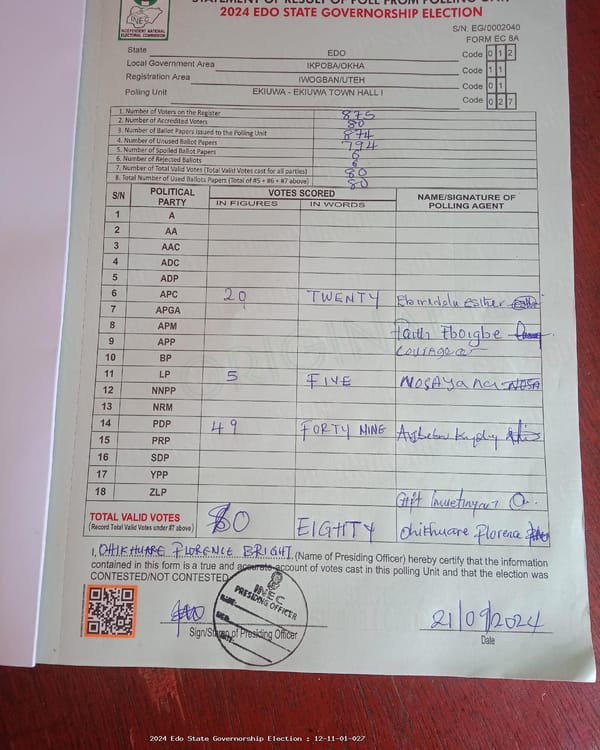 STATEMENT OF RESULT OF POLL FROM POLLING UNIT
2024 EDO STATE GOVERNORSHIP ELECTION
INEC
INDEPENDENT NATIONAL
ELECTORAL COMMISSION
S/N: EG/0002040
FORM EC 8A
State EDO Code 0 1 2
Local Government Area IKPOBA/OKHA Code 1 1
Registration Area IWOGBAN/UTEH Code 0 1
Polling Unit EKIUWA - EKIUWA TOWN HALL I Code 0 2 7
1. Number of Voters on the Register 875
2. Number of Accredited Voters 80
3. Number of Ballot Papers Issued to the Polling Unit 874
4. Number of Unused Ballot Papers 794
5. Number of Spoiled Ballot Papers
6. Number of Rejected Ballots
7. Number of Total Valid Votes (Total Valid Votes cast for all parties) 80
8. Total Number of Used Ballots Papers (Total of #5 + #6 + #7 above) 80
S/N POLITICAL PARTY VOTES SCORED NAME/SIGNATURE OF POLLING AGENT
IN FIGURES IN WORDS
1 A
2 AA
3 AAC
4 ADC
5 ADP
6 APC 20 TWENTY Esther
7 APGA
8 APM Faith Eboigbe
9 APP Courage
10 BP
11 LP 5 FIVE
12 NNPP
13 NRM
14 PDP 49 FORTY NINE
15 PRP
16 SDP
17 YPP
18 ZLP Gift
TOTAL VALID VOTES 80 EIGHTY Florence
(Record Total Valid Votes under #7 above)
I, OHIKHUARE FLORENCE BRIGHT (Name of Presiding Officer) hereby certify that the information
contained in this form is a true and accurate account of votes cast in this polling Unit and that the election was
CONTESTED/NOT CONTESTED
INEC
PRESIDING OFFICER
Sign/Stamp of Presiding Officer
21/09/2024
Date
2024 Edo State Governorship Election : 12-11-01-027